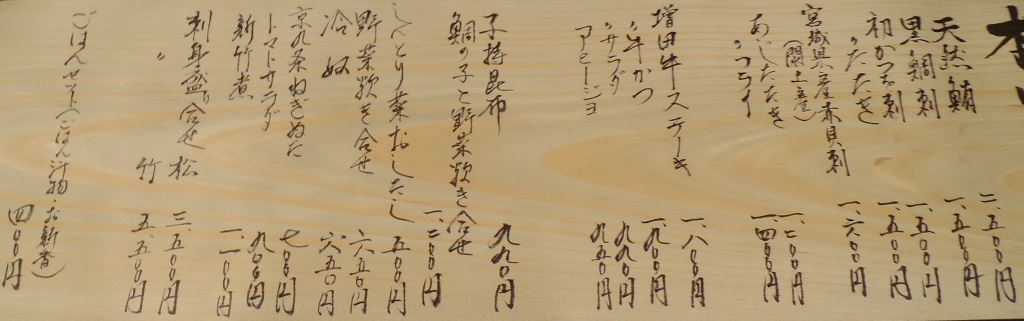 天然鮪 二、五〇〇円
黒鯛刺 一、五〇〇円
初かつお刺 一、五〇〇円
〃たたき 一、五〇〇円
宮城県産赤貝刺 一、六〇〇円
（閖上産）
あじたたき 一、二〇〇円
〃フライ 一、四〇〇円
増田牛ステーキ 一、八〇〇円
〃牛かつ 一、九〇〇円
〃サラダ 九九〇円
アヒージョ 九五〇円
子持昆布 九九〇円
鯛の子と野菜炊き合せ 一、二〇〇円
菜おしたし 五〇〇円
野菜炊き合せ 六五〇円
冷奴 六五〇円
京九条ねぎぬた 七〇〇円
トマトサラダ 九〇〇円
新竹煮 一、二〇〇円
刺身盛り合せ 松 三、五〇〇円
〃 竹 五、五〇〇円
ごはんセット（ごはん・汁物・お新香） 四〇〇円